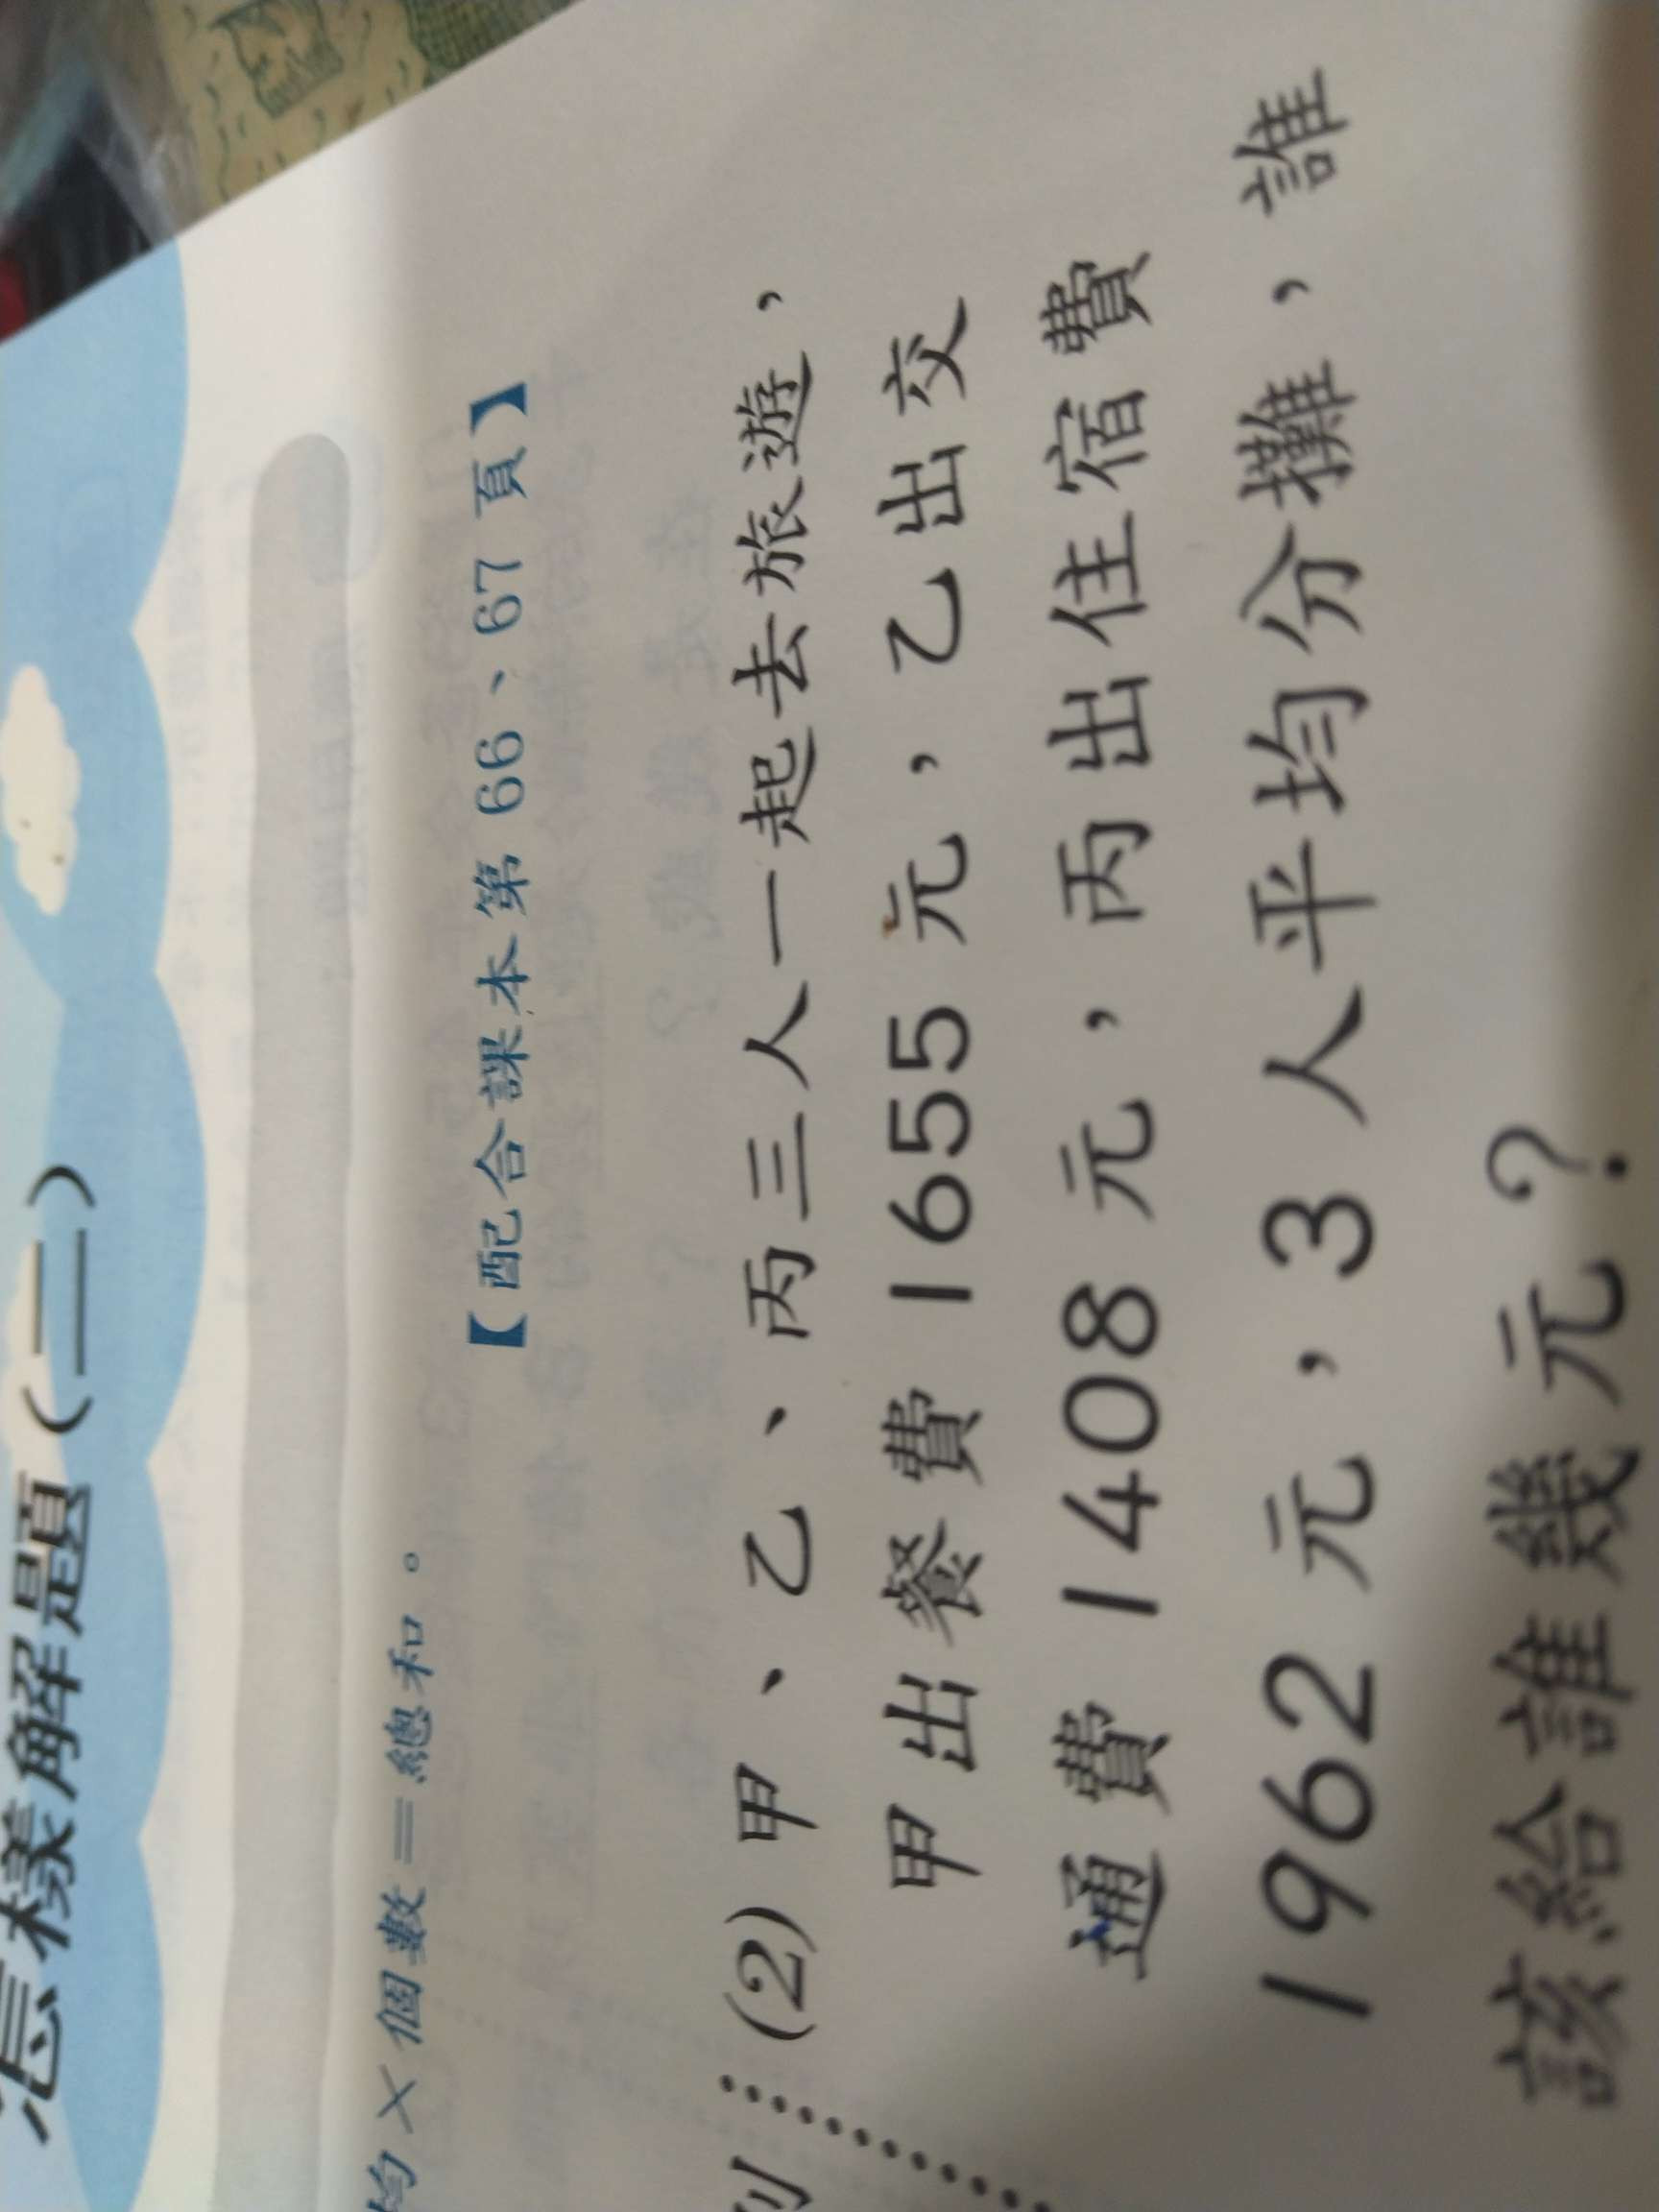 怎樣解題(二)
均×個數=總和。
【配合課本第66、67頁】
(2)甲、乙、丙三人一起去旅遊,
甲出餐費1655元,乙出交
通費1408元,丙出住宿費
1962元,3人平均分攤,誰
該給誰幾元?